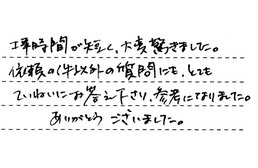 工事時間が短く、大変驚きました。
依頼の件以外の質問にも、とても
ていねいにお答え下さり、参考になりました。
ありがとうございました。